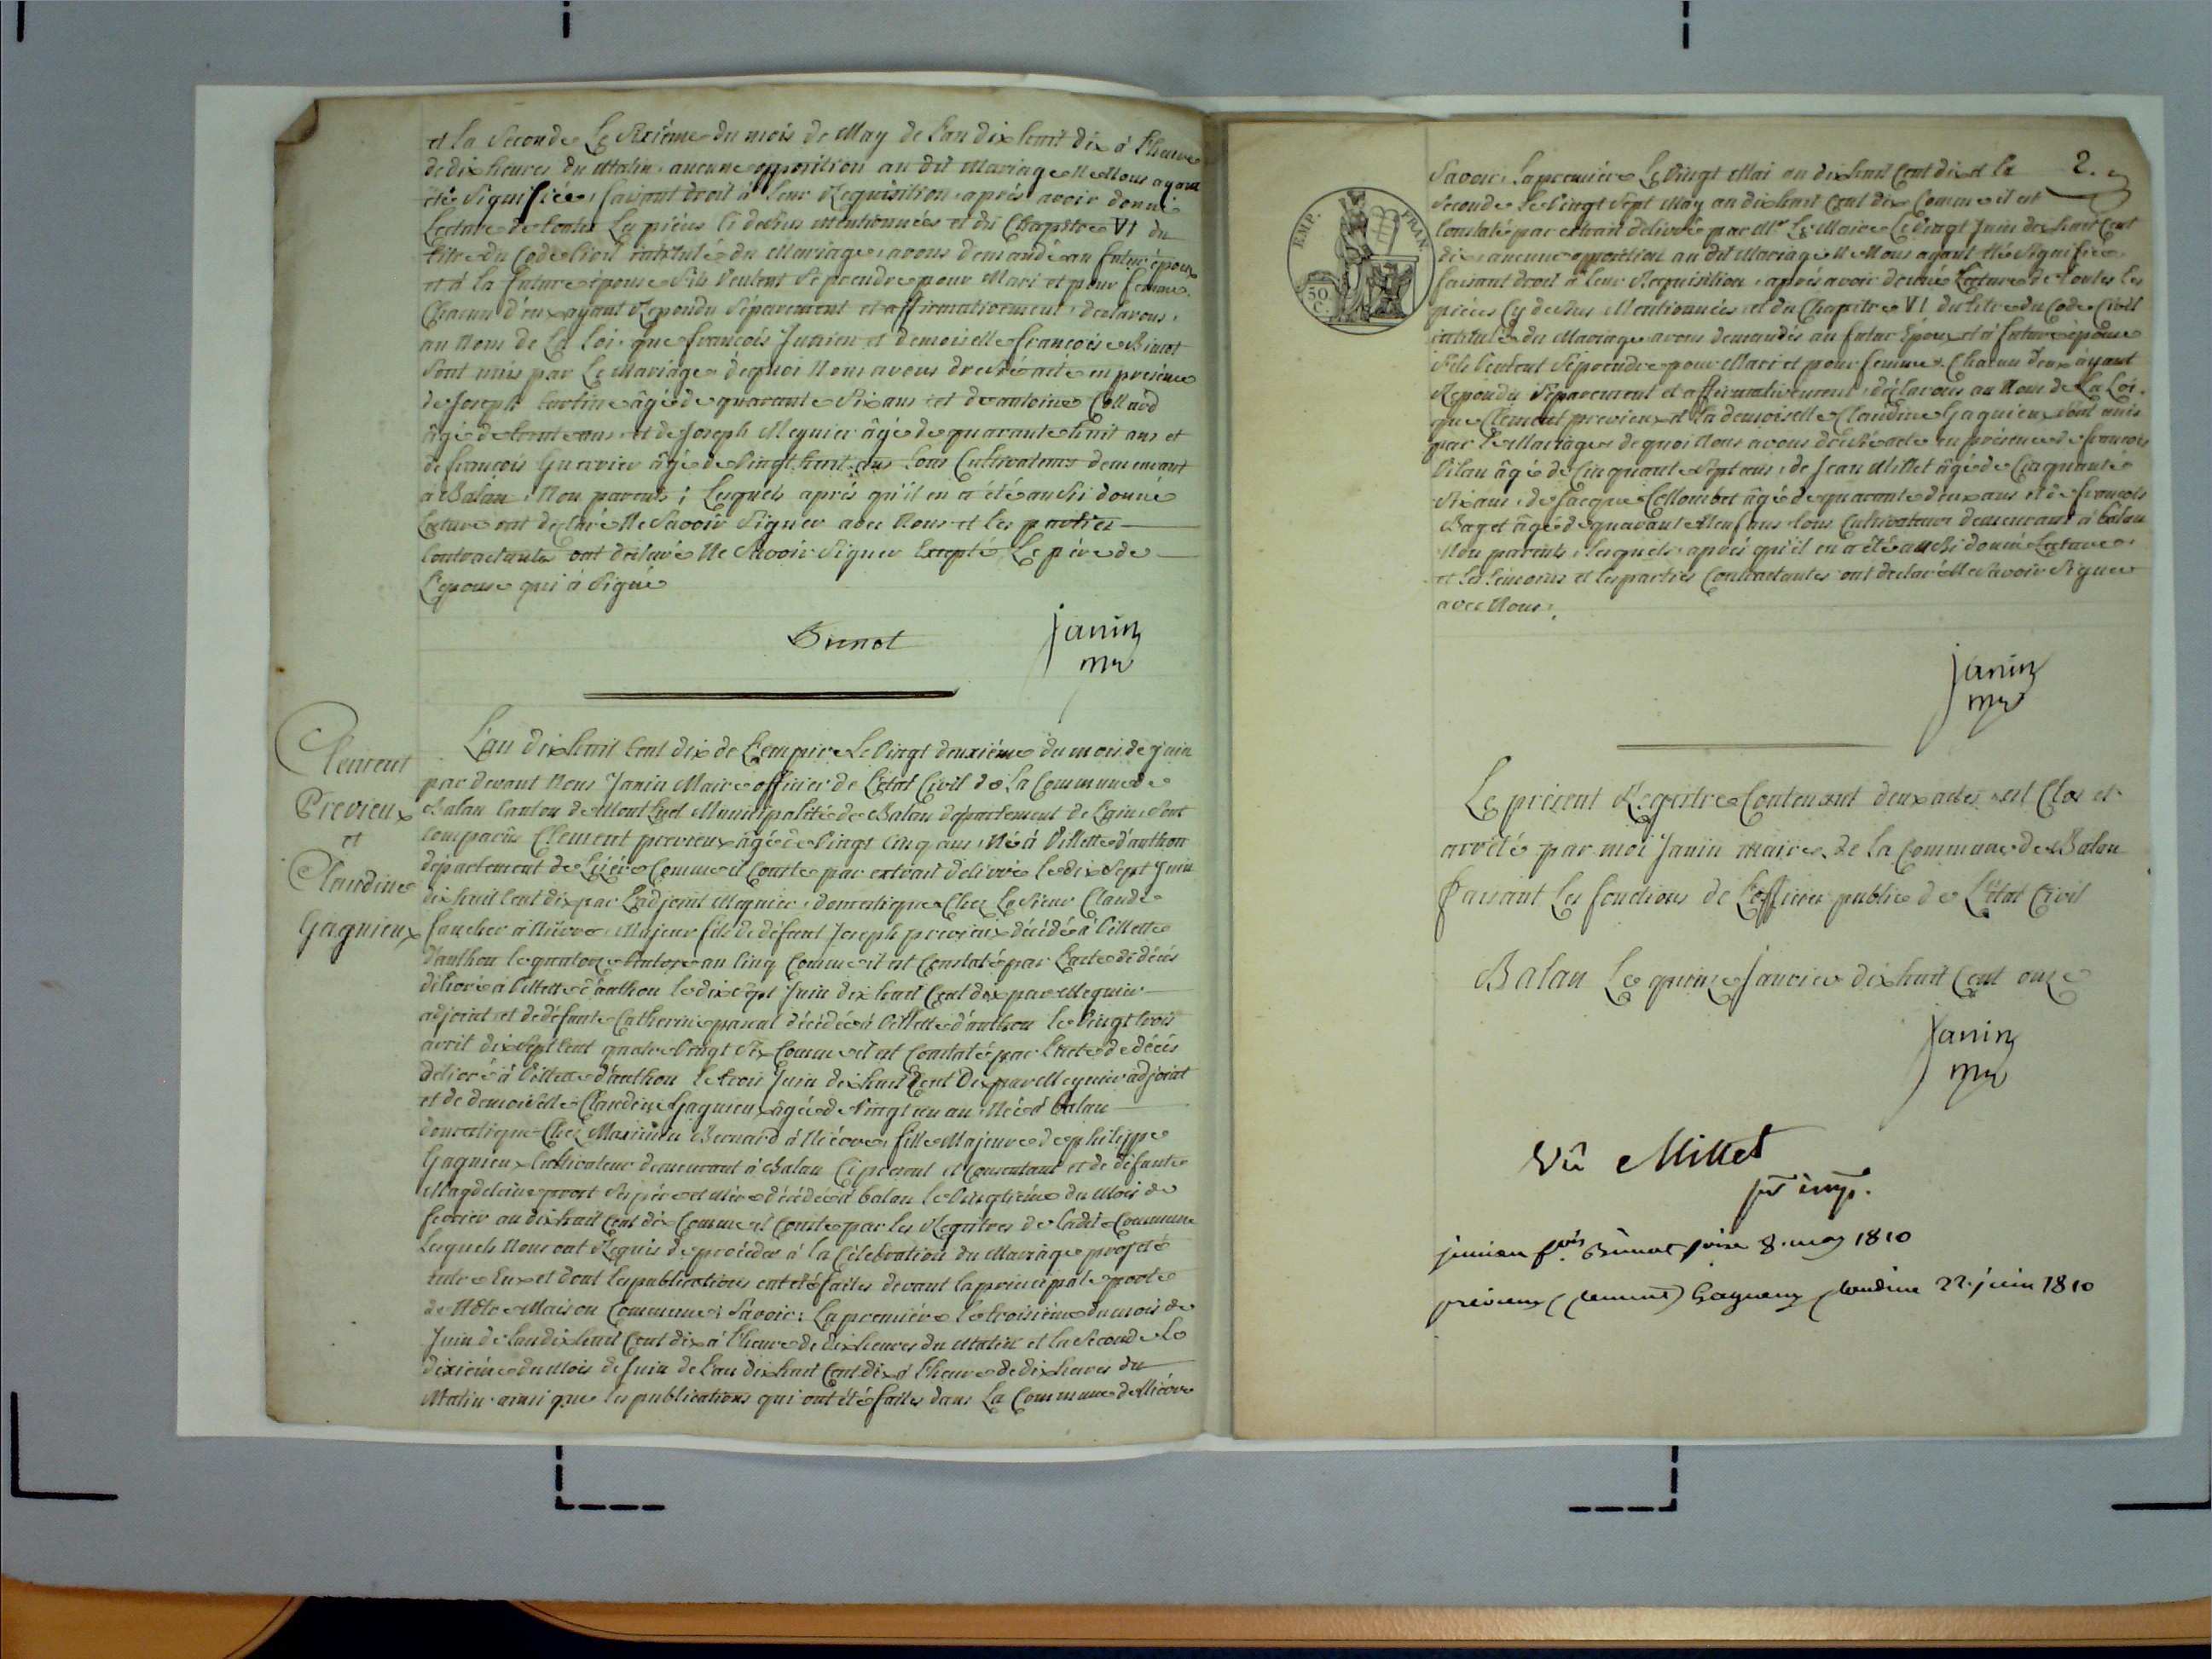 et la Seconde Le Sixième du mois de May de L'an dix huit dix à l'heure
de dix heures du Matin, aucune opposition au dit Mariage Ne Nous ayant
été Signifiée, faisant droit à leur Requisition, après avoir donné
Lecture de toutes Les pièces ci dessus mentionnées et du Chapitre VI du
titre du Code Civil intitulé du Mariage, avons demandé au futur époux
et à la future épouse S'ils Veulent Se prendre pour Mari et pour femme.
Chacun d'eux ayant Repondu Séparement et affirmativement, declarons,
au Nom de La Loi, que françois Junien et demoiselle françoise Binot
Sont unis par Le mariage, dequoi Nous avons dressé acte en presence
de Joseph âgé de quarante Six ans et de antoine Collard
âgé de trente ans et de Joseph Meynier âgé de quarante huit ans et
de françois Guerrier âgé de Vingt huit ans tous Cultivateurs demeurant
à Balan, Non parents; Lesquels après qu'il en a été aussi donné
Lecture ont declaré Ne Savoir Signer avec Nous et les parties
Contractantes ont declaré Ne Savoir Signer Excepté Le père de
L'epouse qui à Signé
Binot
Janin
mre
Clement
Previeux
et
Claudine
Gagnieux
L'an dix huit Cent dix de L'empire Le Vingt deuxième du mois de juin
par devant Nous Janin Maire officier de L'etat Civil de La Commune de
Balan Canton de Montluel Municipalité de Balan département de L'ain, Sont
comparûs Clement previeux âgé de Vingt Cinq ans, Né à Villette d'anthon
département de L'izère Comme il Conste par extrait délivré le dix Sept Juin
dix huit Cent dix par L'adjoint Meynier, domestique Chez Le Sieur Claude
faucher à Nièvre, Majeur fils de défunt Joseph previeux décédé à Villette
d'anthon le quatorze an Cinq Comme il est Constaté par L'acte de décès
délivré à Villette d'anthon le dix Sept Juin dix huit Cent dix par Meynier
adjoint et de défunte Catherine pascal décédée à Villette d'anthon le Vingt trois
avril dix Sept Cent quatre Vingt Six Comme il est Constaté par L'acte de décès
délivré à Villette d'anthon le trois Juin dix huit Cent Dix par Meynier adjoint
et de demoiselle Claudine Gagnieux âgée de Vingt un an Née à balan
domestique Chez Bernard à Nièvre, fille Majeure de philippe
Gagnieux Cultivateur demeurant à Balan Ci présent et Consentant et de défunte
Magdeleine Ses père et mère décédée à balan le Vingtième du Mois de
fevrier an dix huit Cent dix Comme il Conste par les Registres de ladite Commune
Lesquels Nous ont Requis de procéder à la Célébration du Mariage projeté
entre Eux et dont les publications ont été faites devant la principale porte
de Notre Maison Commune; Savoir: La première le troisième du mois de
Juin de L'an dix huit Cent dix à l'heure de dix heures du Matin et la Seconde Le
dixième du Mois de Juin de L'an dix huit Cent dix à l'heure de dix heures du
Matin, ainsi que les publications qui ont été faites dans La Commune de Nièvre
2.
EMP. FRAN.
50
C.
Savoir: La première Le Vingt Mai an dix huit Cent dix et la
Seconde Le Vingt Sept May an dix huit Cent dix Comme il est
Constaté par extrait délivré par Mr Le Maire Le Vingt Juin dix huit Cent
dix, aucune opposition au dit Mariage Ne Nous ayant été Signifiée
faisant droit à leur Requisition, après avoir donné Lecture de toutes les
pièces Cy dessus Mentionnées et du Chapitre VI du titre du Code Civil
intitulé du Mariage avons demandés au futur Epoux et à future épouse
S'ils Veulent Se prendre pour Mari et pour femme. Chacun d'eux ayant
Repondu Séparement et affirmativement, déclarons au Nom de La Loi,
que Clement previeux et la demoiselle Claudine Gagnieux Sont unis
par Le Mariage de quoi Nous avons dressé acte en présence de françois
Vilan âgé de Cinquante Sept ans, de Jean Millet âgé de Cinquante
Six ans, de Jacques Collombet âgé de quarante deux ans et de françois
Baget âgé de quarante Neuf ans tous Cultivateurs demeurant à balan
Non parents, lesquels, après qu'il en a été aussi donné Lecture,
et les témoins et les parties Contractantes ont declaré Ne Savoir Signer
avec Nous.
Janin
mre
Le présent Registre Contenant deux actes est Clos et
arrêté par moi Janin maire de la Commune de Balan
faisant Les fonctions de L'officier public de L'état Civil
Balan Le quinze Janvier dix huit Cent onze
Janin
mre
Vû Millet
pr imp.
junien fois Binot foise 8. may 1810
previeux (clement) Gagneux claudine 22. juin 1810